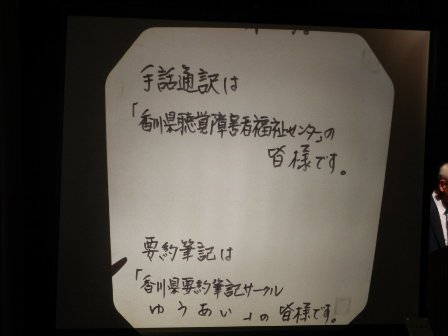 手話通訳は
「香川県聴覚障害者福祉センター」の
皆様です。
要約筆記は
「香川県要約筆記サークル
ゆうあい」の皆様です。